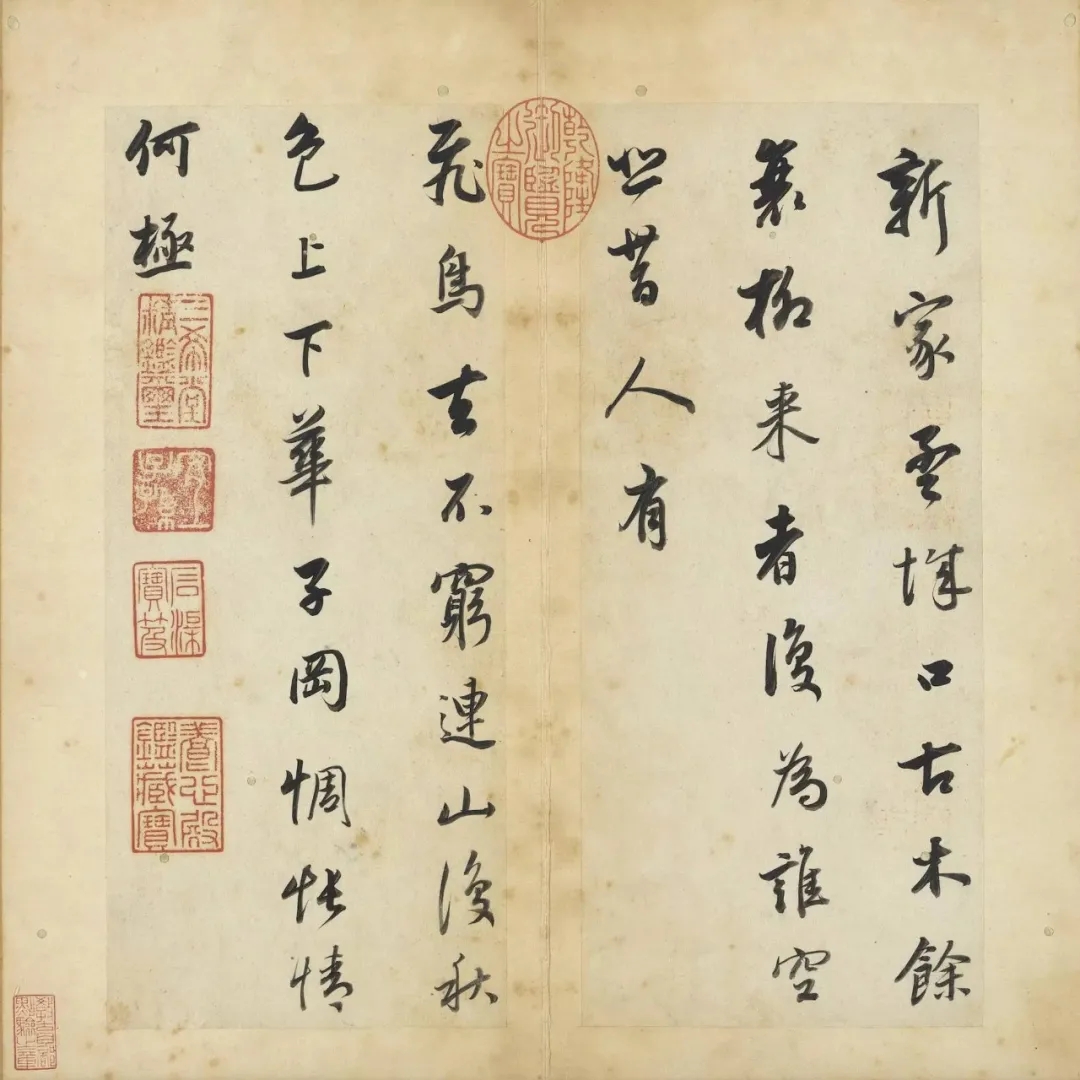 新家孟城口古木餘
衰柳来者復為誰空
悲昔人有
乾隆御覽之寶
飛鳥去不窮連山復秋
色上下華子岡惆悵情
何極
三希堂精鑑璽
石渠寶笈
養心殿鑑藏寶